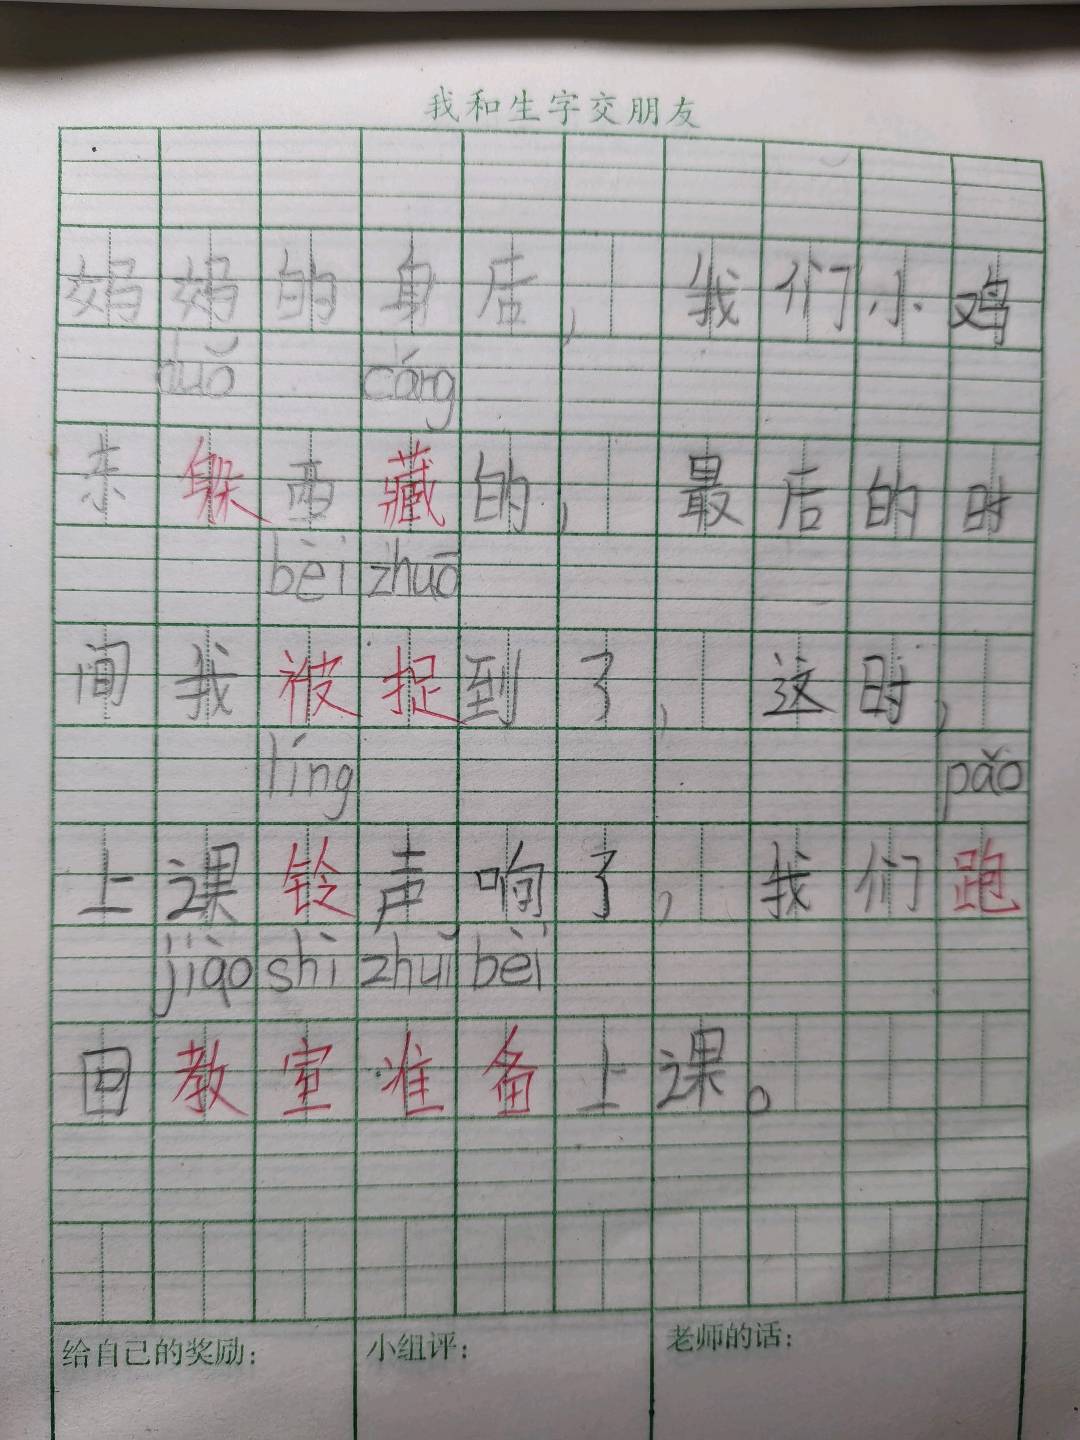 我和生字交朋友
妈妈的身后，我们小鸡
duǒ cáng
东躲西藏的，最后的时
bèi zhuō
间我被捉到了，这时，
líng pǎo
上课铃声响了，我们跑
jiào shì zhuǐ bèi
回教室准备上课。
给自己的奖励： 小组评： 老师的话：